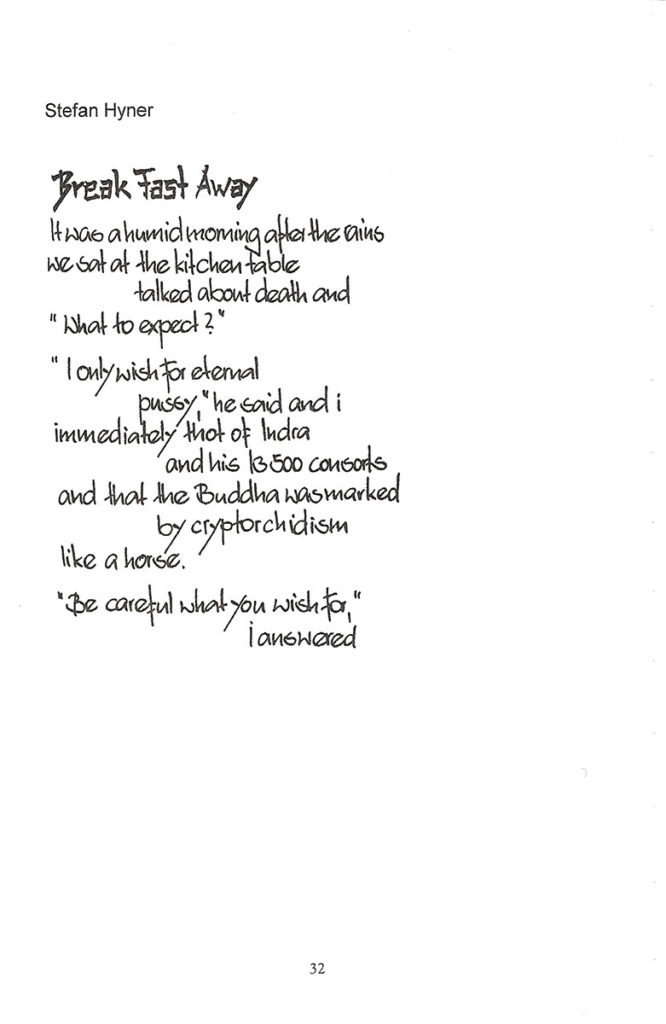 Stefan Hyner
Break Fast Away
It was a humid morning after the rains
we sat at the kitchen table
talked about death and
"What to expect?"
"I only wish for eternal
pussy," he said and i
immediately thot of Indra
and his 13500 consorts
and that the Buddha was marked
by cryptorchidism
like a horse.
"Be careful what you wish for,"
i answered
32